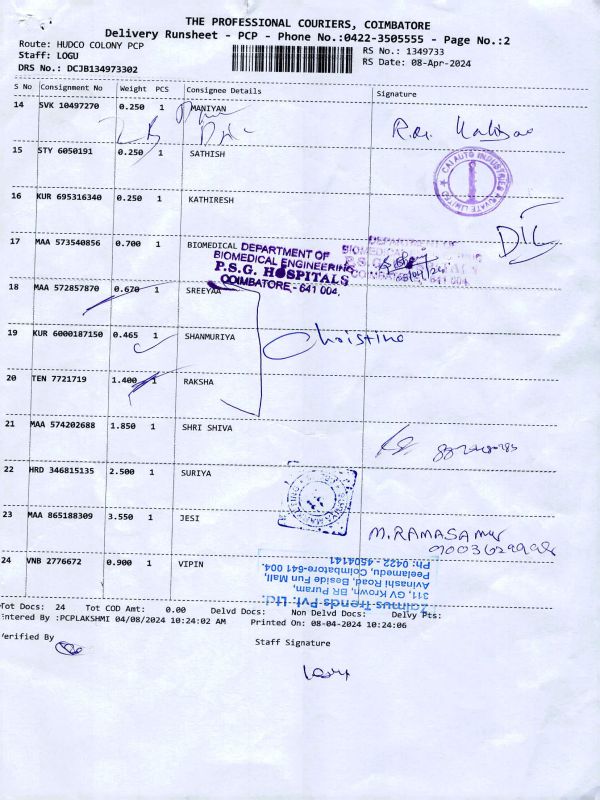 THE PROFESSIONAL COURIERS, COIMBATORE
Delivery Runsheet - PCP - Phone No.:0422-3505555 - Page No.:2
Route: HUDCO COLONY PCP
RS No.: 1349733
Staff: LOGU
RS Date: 08-Apr-2024
DRS No.: DCJB134973302
S No Consignment No Weight PCS Consignee Details Signature
14 SVK 10497270 0.250 1 MANIYAN
15 STY 6050191 0.250 1 SATHISH
CAI AUTO INDUSTRIES PRIVATE LIMITED
16 KUR 695316340 0.250 1 KATHIRESH
17 MAA 573540856 0.700 1 BIOMEDICAL
DEPARTMENT OF
BIOMEDICAL ENGINEERING
P.S.G. HOSPITALS
COIMBATORE - 641 004.
18 MAA 572857870 0.670 1 SREEYAA
19 KUR 6000187150 0.465 1 SHANMURIYA
Christina
20 TEN 7721719 1.400 1 RAKSHA
21 MAA 574202688 1.850 1 SHRI SHIVA
22 HRD 346815135 2.500 1 SURIYA
23 MAA 865188309 3.550 1 JESI
M. RAMASAMY
24 VNB 2776672 0.900 1 VIPIN
Zaimus Trends Pvt. Ltd.
311, GV Krown, BR Puram,
Avinashi Road, Beside Fun Mall,
Peelamedu, Coimbatore-641 004.
Ph: 0422 - 4504141
Tot Docs: 24 Tot COD Amt: 0.00 Delvd Docs: Non Delvd Docs: Delvy Pts:
ntered By :PCPLAKSHMI 04/08/2024 10:24:02 AM Printed On: 08-04-2024 10:24:06
erified By
Staff Signature